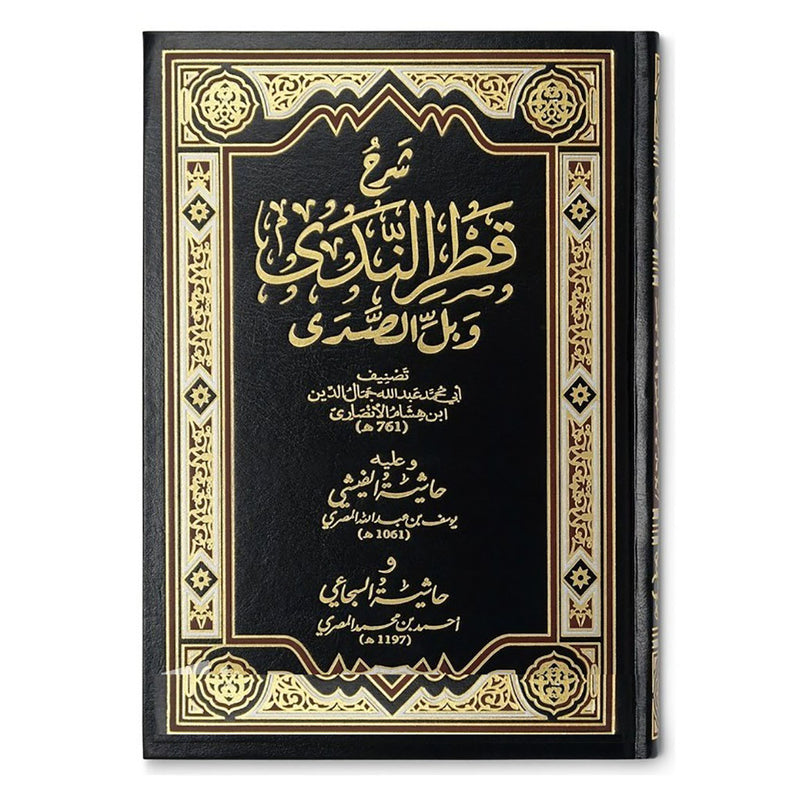 شَرْحُ
قَطْرِ النَّدَى
وَبَلِّ الصَّدَى
تَصْنِيف
أبي محمّد عبد الله جمال الدّين
ابن هشام الأنصاري
(761 هـ)
وعليه
حاشية الفيشي
يوسف بن عبد الله المصري
(1061 هـ)
و
حاشية السجاعي
أحمد بن محمد المصري
(1197 هـ)